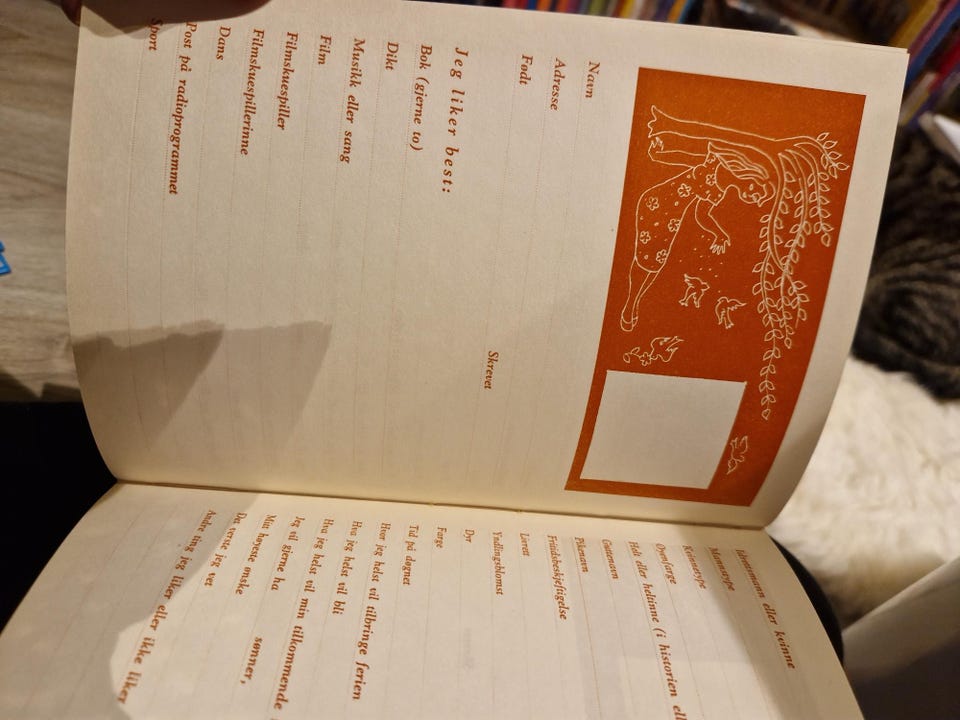 Navn
Adresse
Født
Skrevet
Jeg liker best:
Bok (gjerne to)
Dikt
Musikk eller sang
Film
Filmskuespiller
Filmskuespillerinne
Dans
Post på radioprogrammet
Sport
Idrettsmann eller kvinne
Mannstype
Kvinnetype
Øyenfarge
Helt eller heltinne (i historien el
Guttenavn
Pikenavn
Fritidsbeskjeftigelse
Lørett
Yndlingsblomst
Dyr
Farge
Tid på døgnet
Hvor jeg helst vil tilbringe ferien
Hva jeg helst vil bli
Hva jeg helst vil min tilkommende
Jeg vil gjerne ha
sønner,
Mitt høyeste ønske
Det verste jeg vet
Andre ting jeg liker eller ikke liker